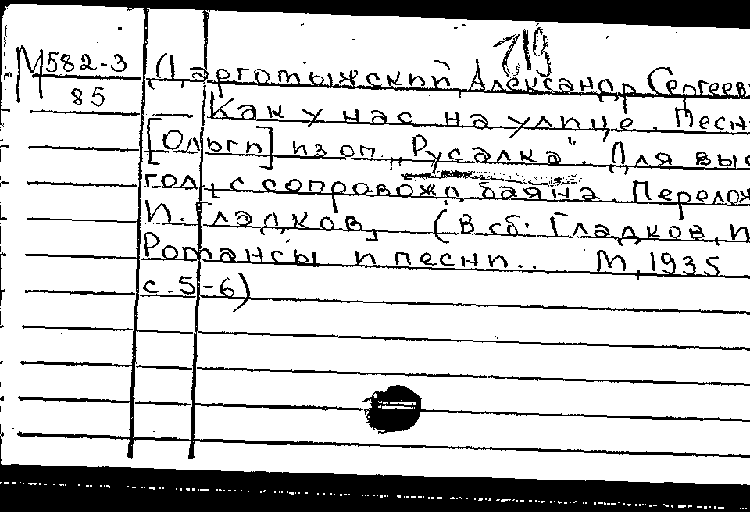 719
М 582-3
85
Даргомыжский, Александр Сергеев
Как у нас на улице. Песн
[Ольги] из оп. „Русалка". Для выс
гол. с сопровожд. баяна. Перелож
И. Гладков, (В сб: Гладков, И
Романсы и песни.. М, 1935
с. 5-6)